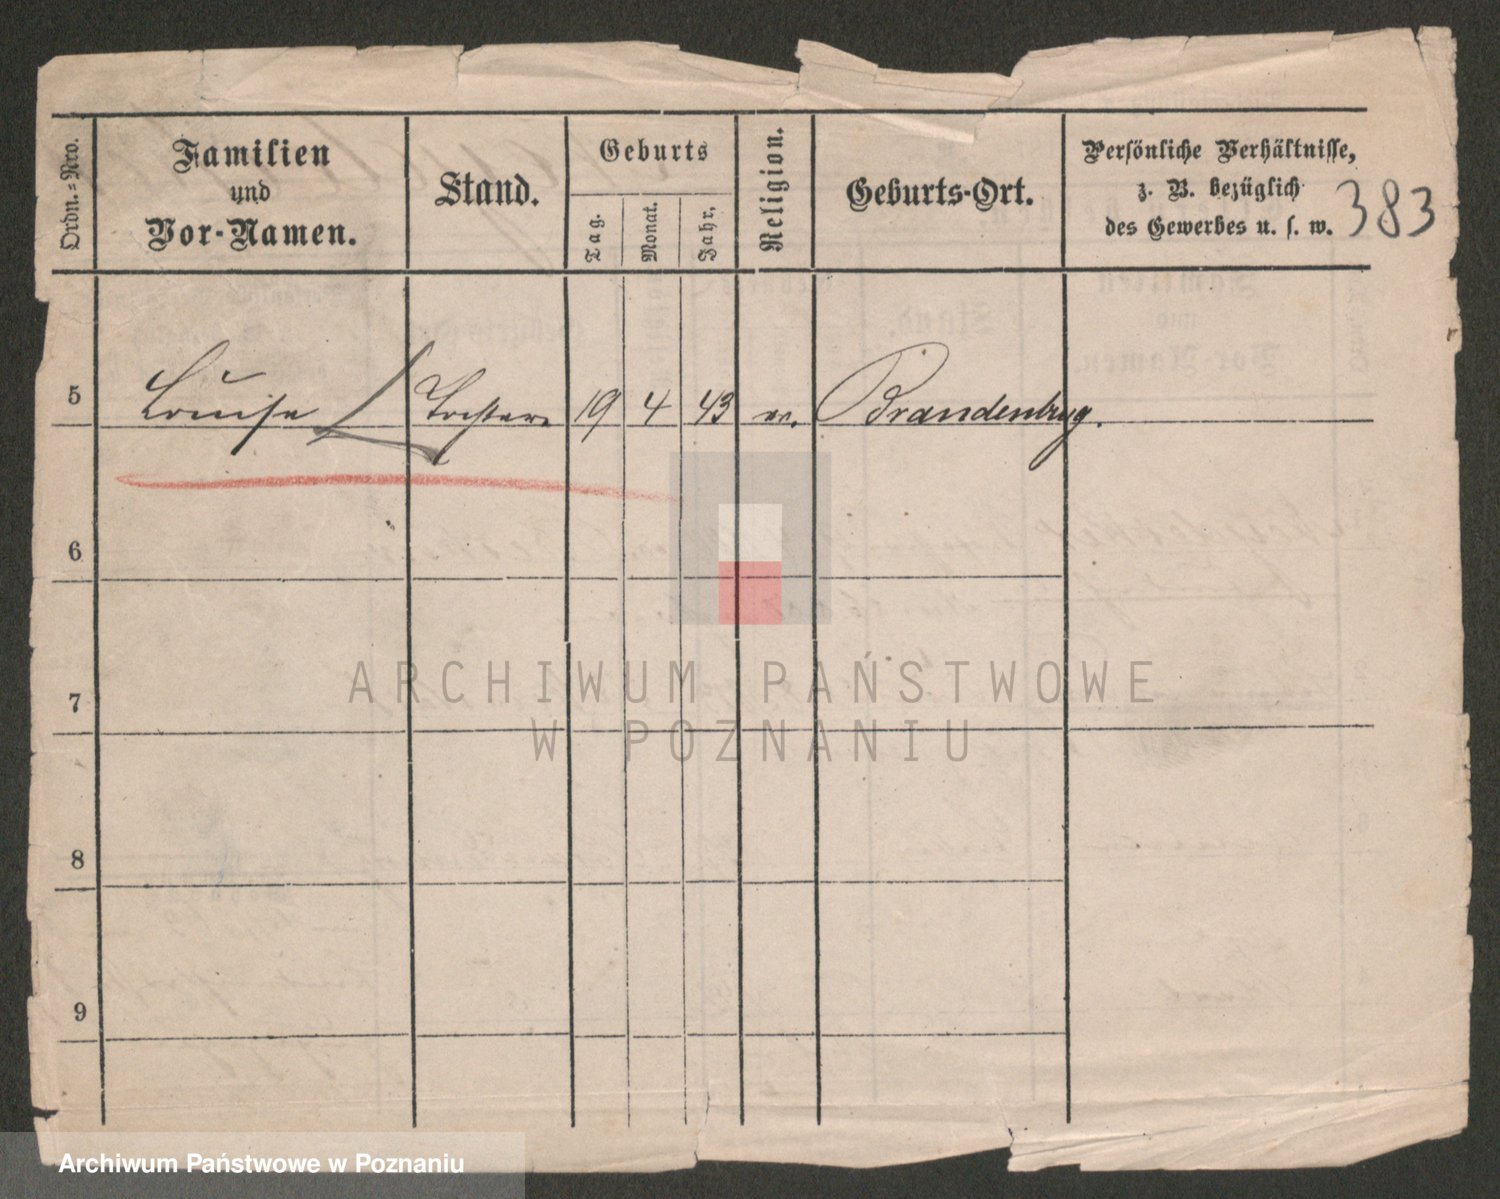 Ordn.=Nro.
Familien
und
Vor-Namen.
Stand.
Geburts
Tag.
Monat.
Jahr,
Religion.
Geburts-Ort.
Persönliche Verhältnisse,
z. B. bezüglich
des Gewerbes u. s. w.
383
5 Louise Tochter 19 4 43 ev. Brandenburg.
6
7
8
9
ARCHIWUM PAŃSTWOWE
W POZNANIU
Archiwum Państwowe w Poznaniu